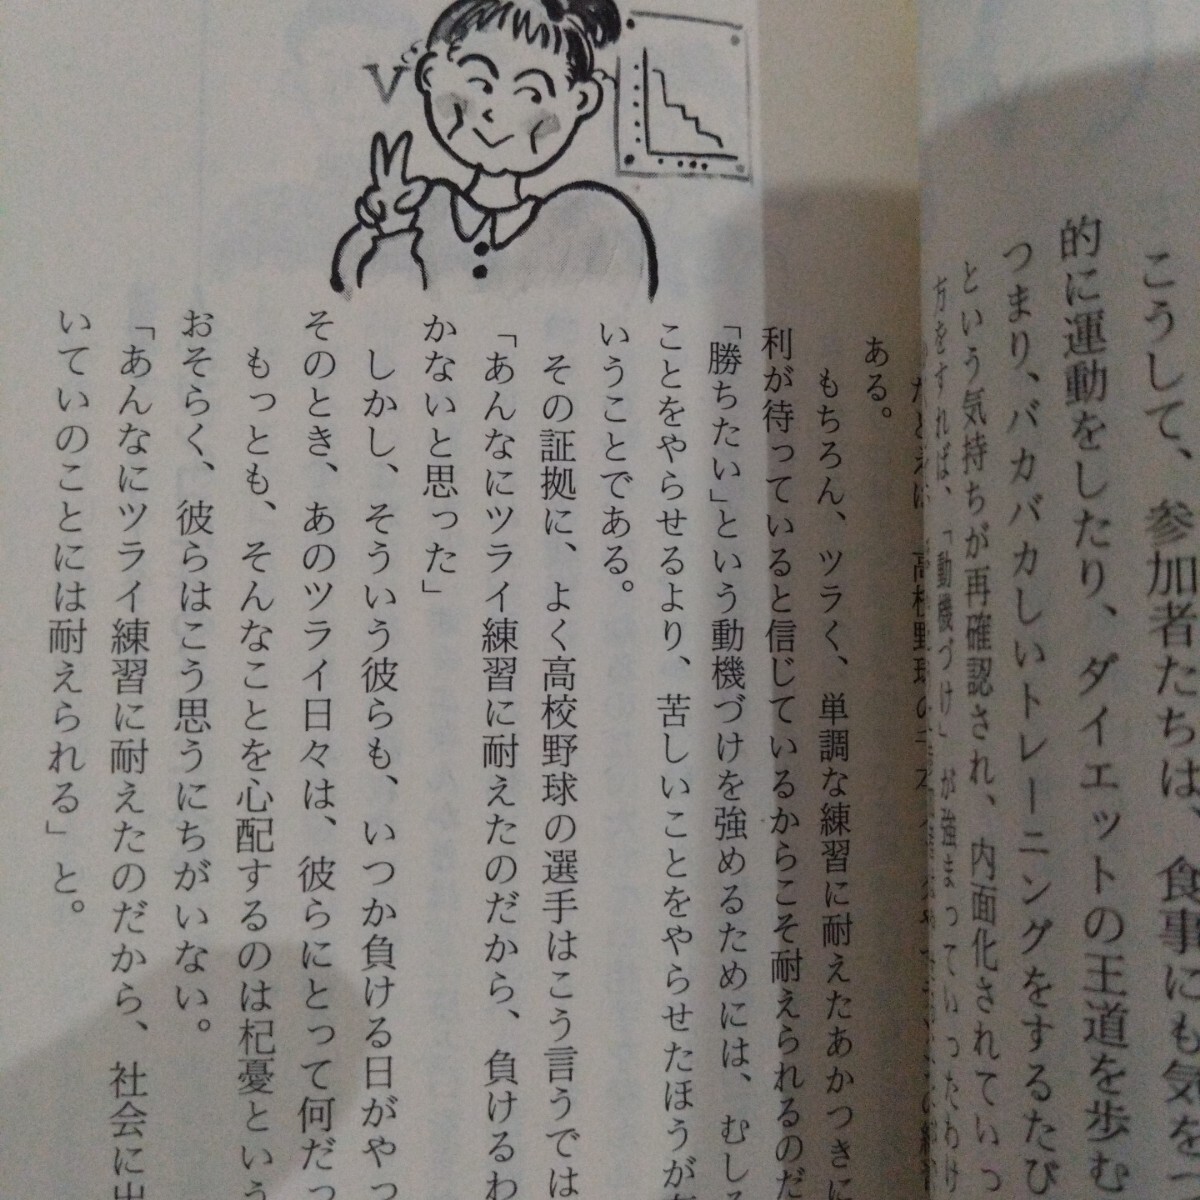 こうして、参加者たちは、食事にも気を
的に運動をしたり、ダイエットの王道を歩む
つまり、バカバカしいトレーニングをするたび
という気持ちが再確認され、内面化されていっ
方をすれば、「動機づけ」が強まっていったわけ
高校野球の
ある。
もちろん、ツラく、単調な練習に耐えたあかつきに
利が待っていると信じているからこそ耐えられるのだ
「勝ちたい」という動機づけを強めるためには、むしろ
ことをやらせるより、苦しいことをやらせたほうが
いうことである。
その証拠に、よく高校野球の選手はこう言うでは
「あんなにツライ練習に耐えたのだから、負けるわ
かないと思った」
しかし、そういう彼らも、いつか負ける日がやっ
そのとき、あのツライ日々は、彼らにとって何だっ
もっとも、そんなことを心配するのは杞憂という
おそらく、彼らはこう思うにちがいない。
「あんなにツライ練習に耐えたのだから、社会に出
いていのことには耐えられる」と。
V